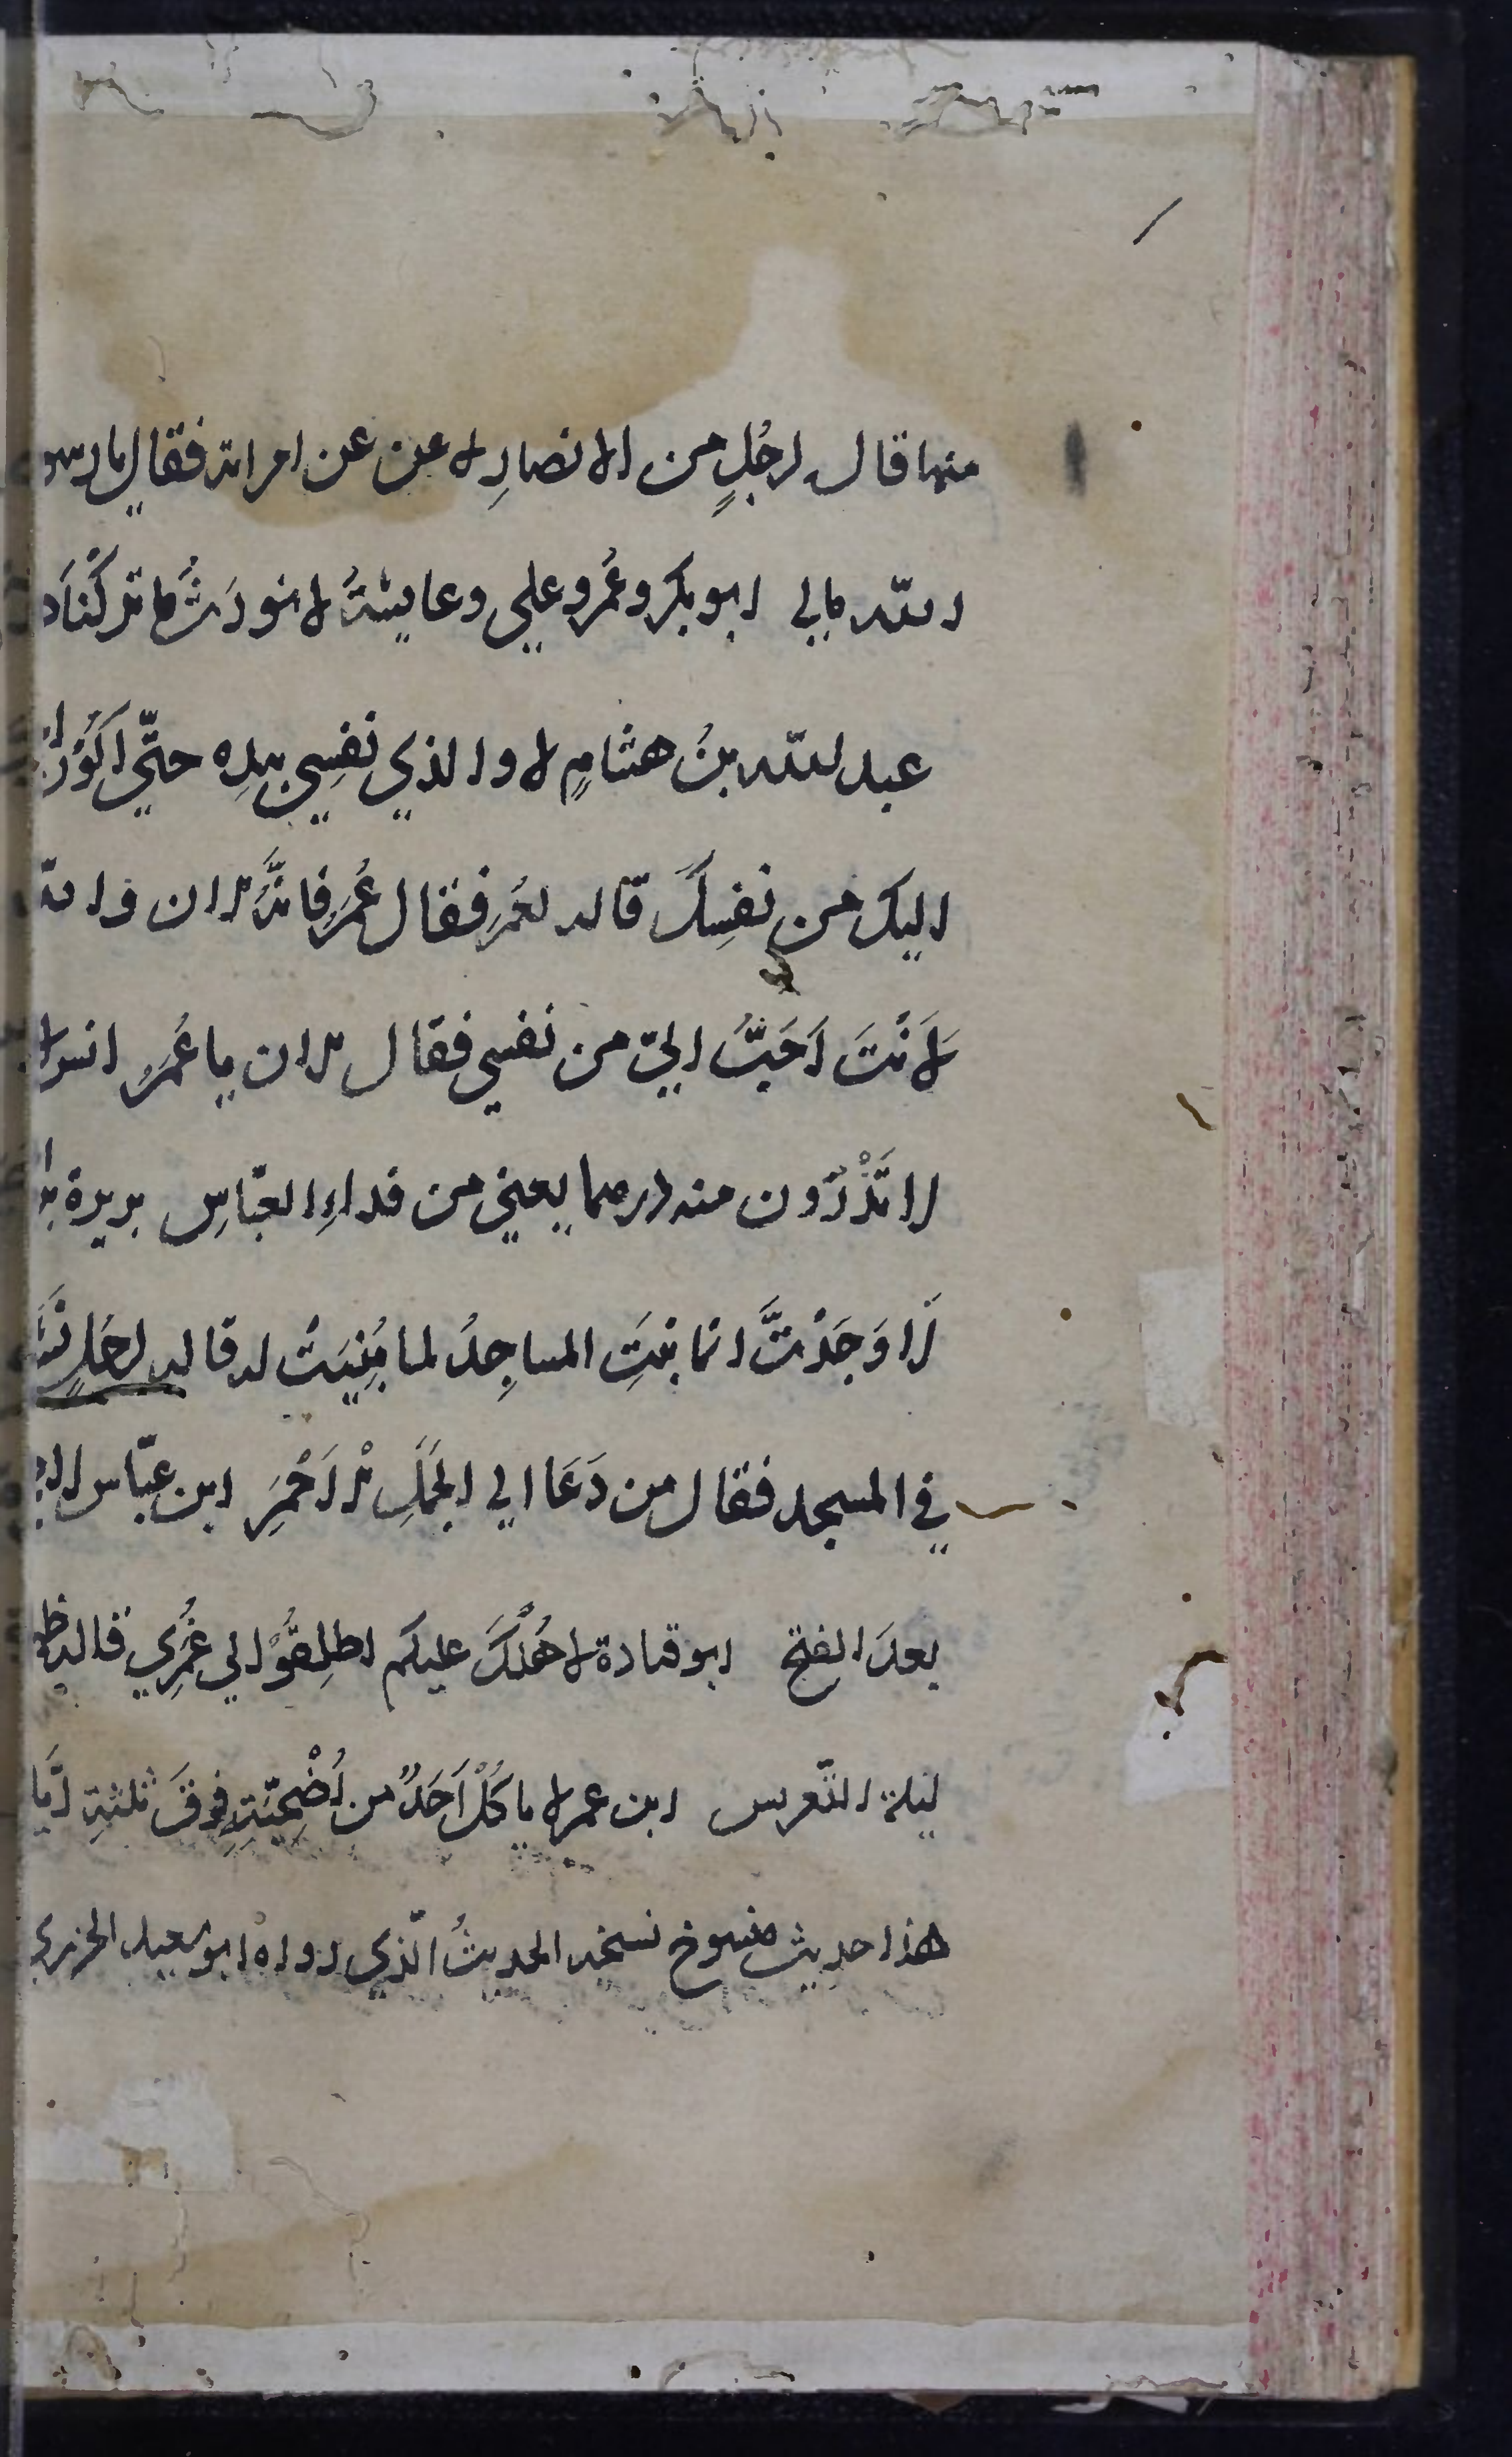 منها قاله لرجلٍ من الانصارِ لا عن عن امراته فقال يا رسو
الله مالي ابو بكر وعُمر وعلي وعايشةُ لا نورَثُ ما تركْنا
عبد الله بنُ هشامٍ لا والذي نفسِي بيدِه حتّي اكُونَ
اليك من نفسِكَ قاله لعُمرَ فقال عُمَر فانَّه الان والله
لَانْتَ اَحَبُّ اليّ من نفسي فقال الان يا عُمَرُ انس لا
لا تَذْرُون منه درهما يعني من فداءِ العبّاسِ بريدة
لَا وَجَدْتَّ انما بنيَتِ المساجِدُ لما بُنِيَتْ له قاله لرجلٍ
في المسجد فقال من دَعَا الي الجَمَلِ الاَحْمَرِ ابن عبّاس لا
بعدَ الفتح ابو قتادة لا هُلْكَ عليكم اطلِقُوْا لي غُمَرِي قاله
ليلة التّعريس ابن عمر لا ياكُلْ اَحَدٌ من اُضْحِيّتِه فوقَ ثلثةِ ايّا
هذا حديث منسوخ نسخه الحديثُ الّذي رواه ابو سعيد الخدري